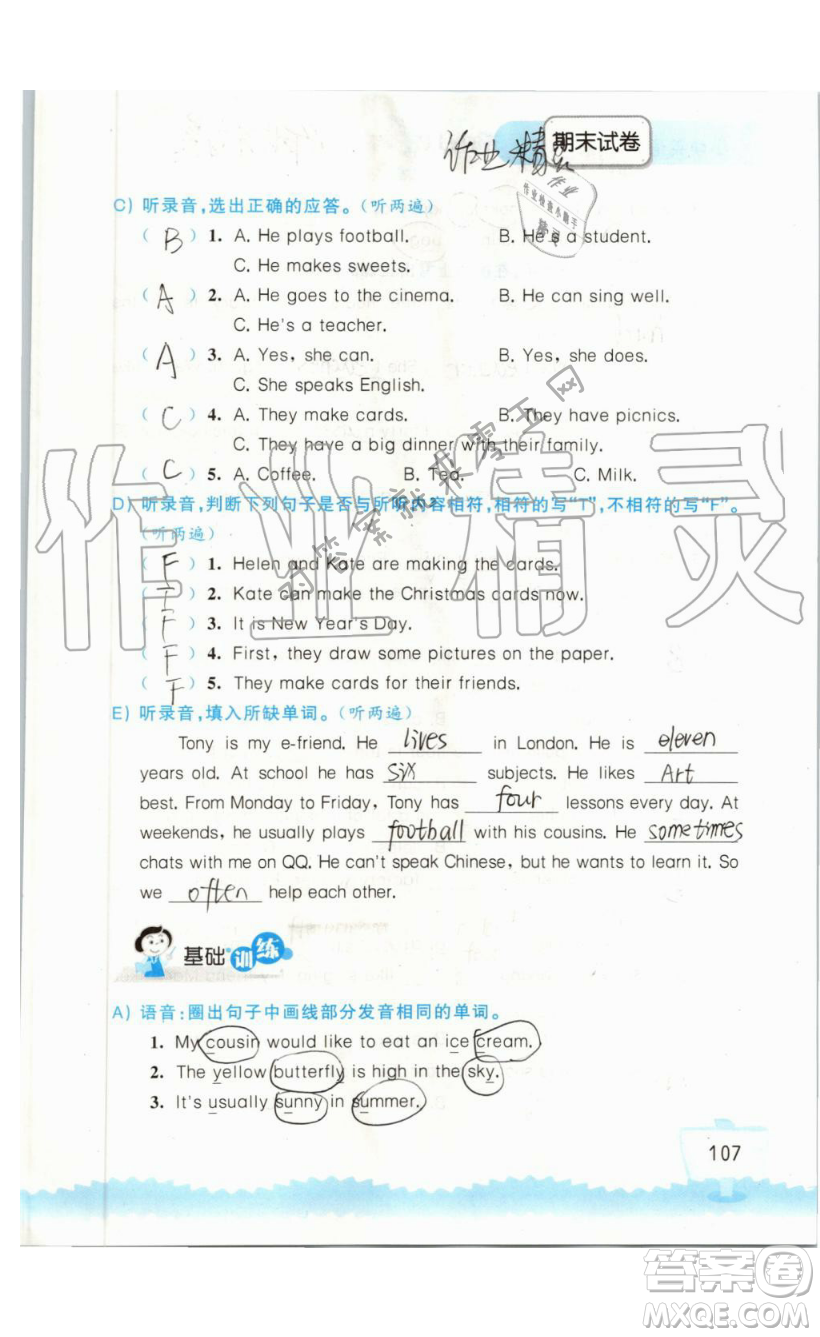 作业精灵
期末试卷
作业
作业检查小助手
精灵
C) 听录音,选出正确的应答。(听两遍)
( B ) 1. A. He plays football. B. He's a student.
C. He makes sweets.
( A ) 2. A. He goes to the cinema. B. He can sing well.
C. He's a teacher.
( A ) 3. A. Yes, she can. B. Yes, she does.
C. She speaks English.
( C ) 4. A. They make cards. B. They have picnics.
C. They have a big dinner with their family.
( C ) 5. A. Coffee. B. Tea. C. Milk.
D) 听录音,判断下列句子是否与所听内容相符,相符的写"T",不相符的写"F"。
(听两遍)
( F ) 1. Helen and Kate are making the cards.
( T ) 2. Kate can make the Christmas cards now.
( F ) 3. It is New Year's Day.
( F ) 4. First, they draw some pictures on the paper.
( F ) 5. They make cards for their friends.
E) 听录音,填入所缺单词。(听两遍)
Tony is my e-friend. He lives in London. He is eleven
years old. At school he has six subjects. He likes Art
best. From Monday to Friday, Tony has four lessons every day. At
weekends, he usually plays football with his cousins. He sometimes
chats with me on QQ. He can't speak Chinese, but he wants to learn it. So
we often help each other.
基础训练
A) 语音:圈出句子中画线部分发音相同的单词。
1. My cousin would like to eat an ice cream.
2. The yellow butterfly is high in the sky.
3. It's usually sunny in summer.
107
作业精灵
答案卷
MXQE.COM